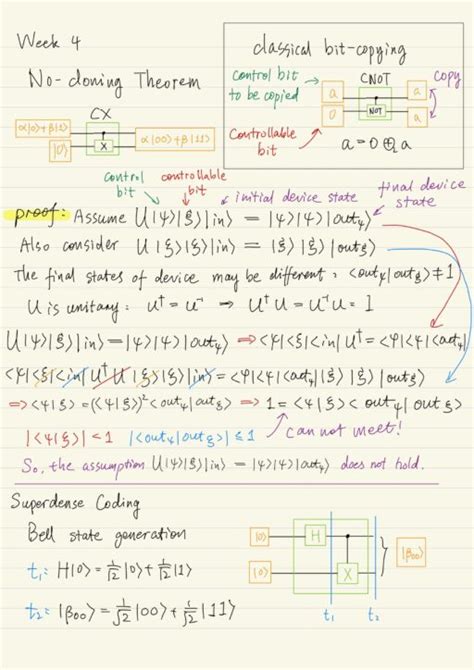 Week 4
No-cloning Theorem
CX
α|0⟩+β|1⟩
|0⟩
X
α|00⟩+β|11⟩
classical bit-copying
control bit
to be copied
CNOT
copy
a
a
0
NOT
a
controllable
bit
a = 0 ⊕ a
control
bit
controllable
bit
initial device state
final device
state
proof: Assume U|ψ⟩|ξ⟩|in⟩ = |ψ⟩|ψ⟩|outψ⟩
Also consider U|ξ⟩|ξ⟩|in⟩ = |ξ⟩|ξ⟩|outξ⟩
The final states of device may be different: ⟨outψ|outξ⟩≠1
U is unitary: U† = U⁻¹ → U†U = U⁻¹U = I
U|ψ⟩|ξ⟩|in⟩ = |ψ⟩|ψ⟩|outψ⟩ ⇒ ⟨ψ|⟨ξ|⟨in|U† = ⟨ψ|⟨ψ|⟨outψ|
⟨ψ|⟨ξ|⟨in|U† U|ξ⟩|ξ⟩|in⟩ = ⟨ψ|⟨ψ|⟨outψ|ξ⟩|ξ⟩|outξ⟩
⇒ ⟨ψ|ξ⟩ = (⟨ψ|ξ⟩)²⟨outψ|outξ⟩ ⇒ 1 = ⟨ψ|ξ⟩⟨outψ|outξ⟩
|⟨ψ|ξ⟩| < 1 |⟨outψ|outξ⟩| ≤ 1 can not meet!
So, the assumption U|ψ⟩|ξ⟩|in⟩ = |ψ⟩|ψ⟩|outψ⟩ does not hold.
Superdense Coding
Bell state generation
t₁: H|0⟩ = 1/√2|0⟩ + 1/√2|1⟩
t₂: |β₀₀⟩ = 1/√2|00⟩ + 1/√2|11⟩
|0⟩
H
|0⟩
X
|β₀₀⟩
t₁
t₂